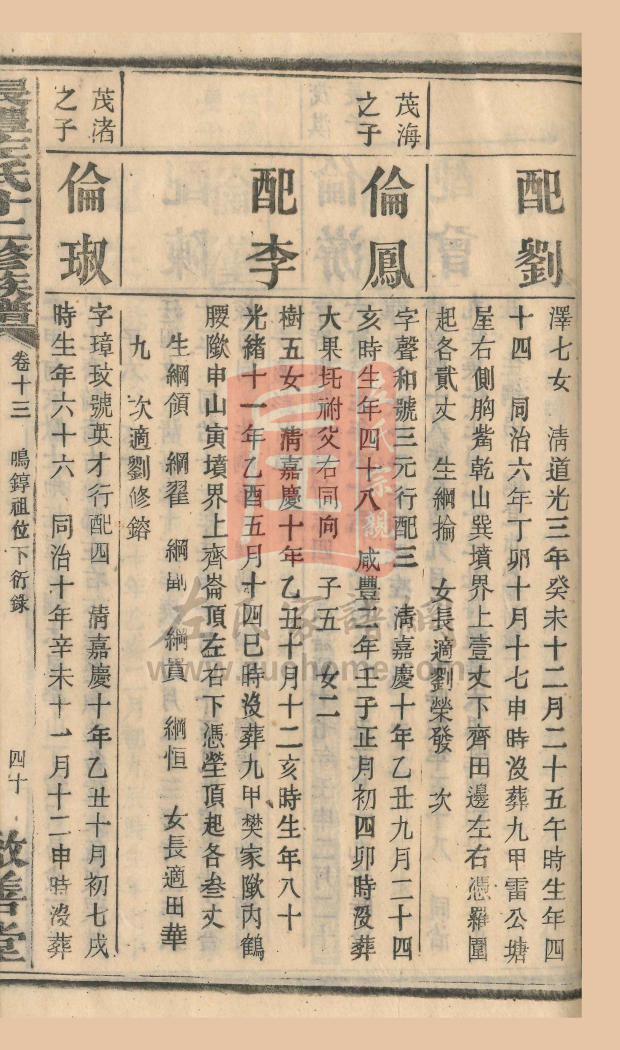 配劉
澤七女　清道光三年癸未十二月二十五午時生年四
十四　同治六年丁卯十月十七申時沒葬九甲雷公塘
屋右側胸觜乾山巽墳界上壹丈下齊田邊左右憑羅圍
起各貳丈　生綱掄　女長適劉榮發　次
茂海
之子
倫鳳
字聲和號三元行配三　清嘉慶十年乙丑九月二十四
亥時生年四十八　咸豐二年壬子正月初四卯時沒葬
大果坨祔父右同向　子五　女二
配李
樹五女　清嘉慶十年乙丑十月十二亥時生年八十
光緒十一年乙酉五月十四巳時沒葬九甲樊家歟內鶴
腰歟申山寅墳界上齊崙頂左右下憑塋頂起各叁丈
生綱領　綱翟　綱副　綱貫　綱恒　女長適田華
九　次適劉修鎔
茂渚
之子
倫琡
字璋玟號英才行配四　清嘉慶十年乙丑十月初七戌
時生年六十六　同治十年辛未十一月十二申時沒葬
卷十三　鳴錞祖位下衍錄　四十
左氏家譜網
www.zuohome.com